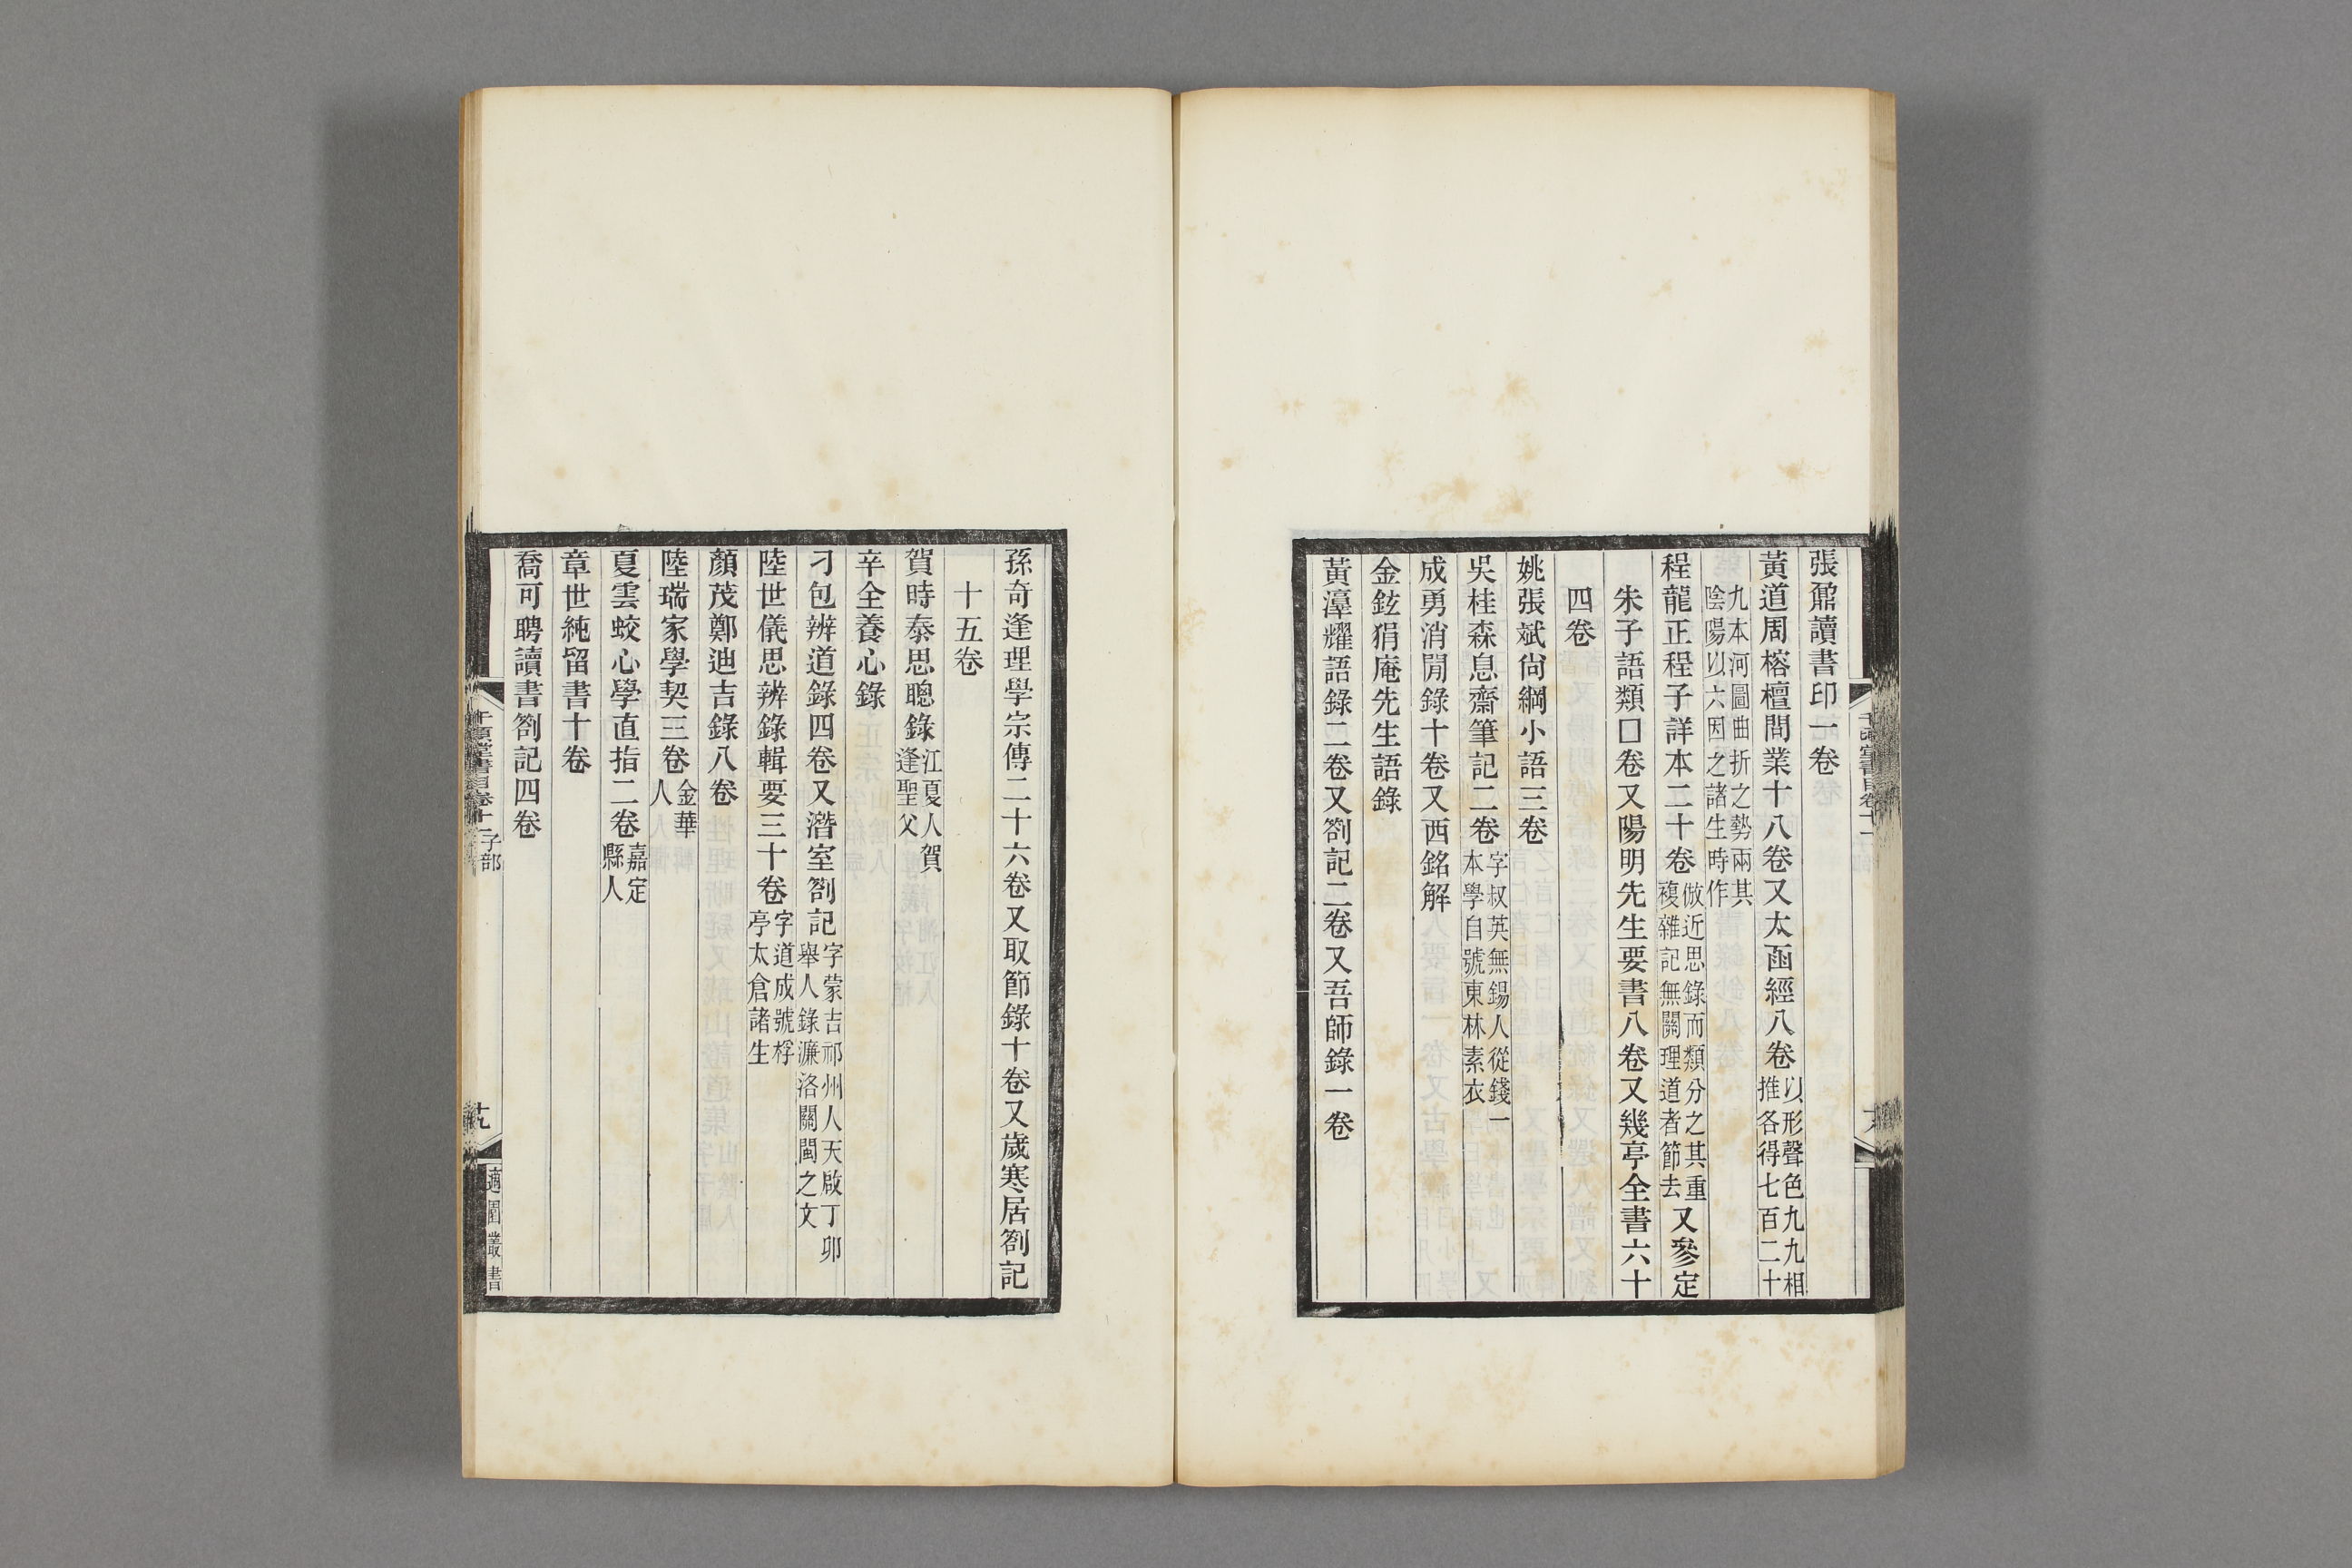 張鼐讀書印一卷
黃道周榕檀問業十八卷又太函經八卷以形聲色九九相推各得七百二十
九本河圖曲折之勢兩其陰陽以六因之諸生時作
程龍正程子詳本二十卷倣近思錄而類分之其重複雜記無關理道者節去又參定
朱子語類□卷又陽明先生要書八卷又幾亭全書六十
四卷
姚張斌尙綱小語三卷
吳桂森息齋筆記二卷字叔英無錫人從錢一本學自號東林素衣
成勇消閒錄十卷又西銘解
金鉉狷庵先生語錄
黃漳耀語錄二卷又劄記二卷又吾師錄一卷
千頃堂書目卷十一
孫奇逢理學宗傳二十六卷又取節錄十卷又歲寒居劄記
十五卷
賀時泰思聰錄江夏人賀逢聖父
辛全養心錄
刁包辨道錄四卷又潛室劄記字蒙吉祁州人天啟丁卯舉人錄濂洛關閩之文
陸世儀思辨錄輯要三十卷字道成號桴亭太倉諸生
顏茂鄭迪吉錄八卷
陸瑞家學契三卷金華人
夏雲蛟心學直指二卷嘉定縣人
章世純留書十卷
喬可聘讀書劄記四卷
千頃堂書目卷十一 子部
適園叢書